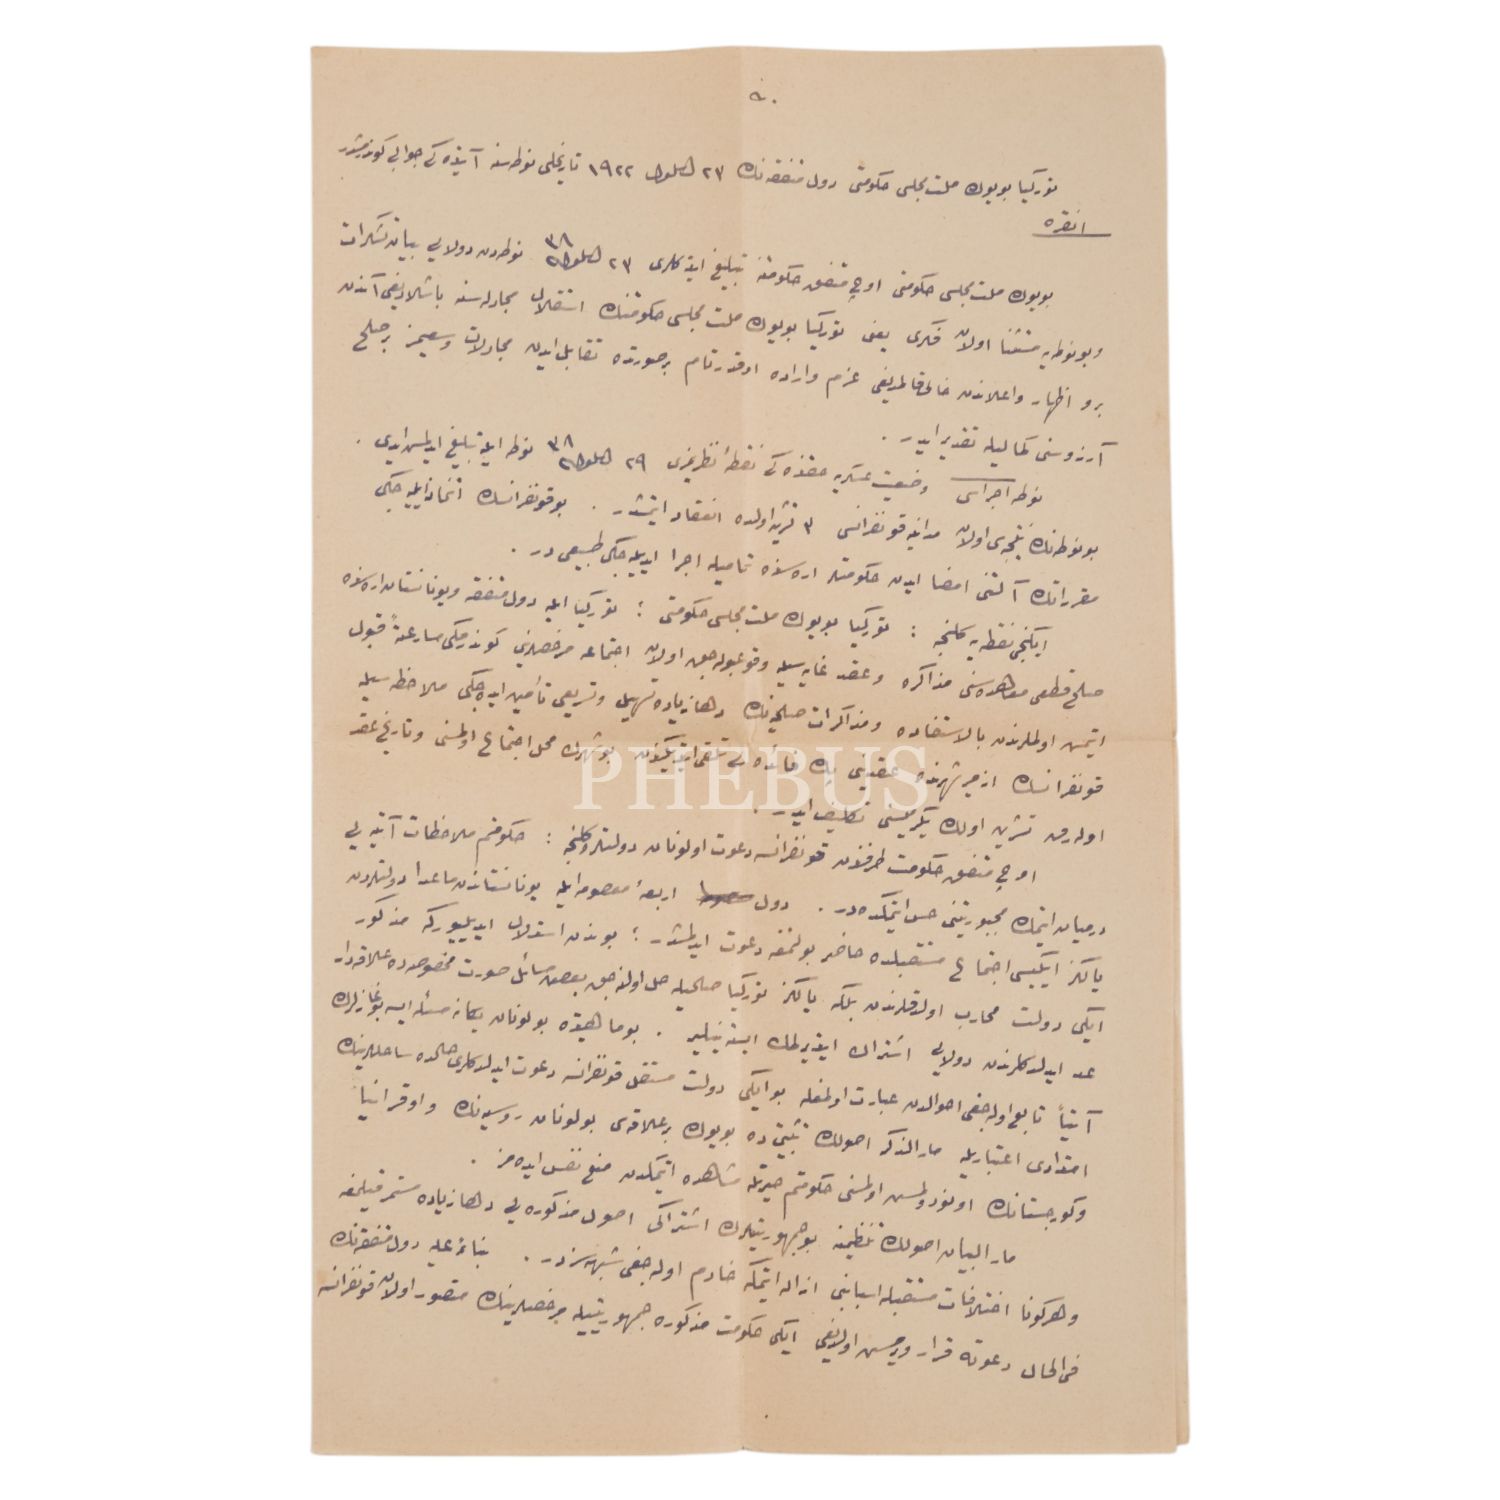 توركيا بويوك ملت مجلسى حكومتى دول متفقه‌نك ٢٣ ايلول ١٩٢٢ تاريخلى نوطه‌سنه آتيده‌كى جوابى كوندرمشدر
انقره
بويوك ملت مجلسى حكومتى اوچ متفق حكومته تبليغ ايتدكلرى ٢٣ ايلول ٣٨ نوطه‌دن دولايى بيان تشكرات
وبو نوطه‌يه منشأ اولان فكرى يعنى توركيا بويوك ملت مجلسى حكومتنك استقلال مجادله‌سنه باشلاديغى آندن
برو اظهار واعلاندن خالى قالمديغى عزم واراده اوقدر تام بر صورتده تقابل ايدن مجادلات وسعيمز بر صلح
آرزوسنى كماليله تقدير ايدر .
نوطه اجراسى وضعيت عسكريه حقنده‌كى نقطۀ نظريمزى ٢٩ ايلول ٣٨ نوطه ايله تبليغ ايدلمش ايدى .
بو نوطه‌نك نتيجه‌سى اولان مدانيه قونفرانسى ٣ تشرين اولده انعقاد ايتمشدر . بو قونفرانسك اتخاذ ايليه‌جكى
مقرراتك آلتنى امضا ايدن حكومتلر اره‌سنده تماميله اجرا ايديله‌جكى طبيعى در .
ايكنجى نقطه‌يه كلنجه : توركيا بويوك ملت مجلسى حكومتى ؛ توركيا ايله دول متفقه ويونانستان اره‌سنده
صلح قطعى معاهده‌سنى مذاكره وعقد غايه‌سيله وقوعبوله‌جق اولان اجتماعه مرخصلرينى كوندرمكى مسارعةً قبول
ايتمش اولملرندن بالاستفاده ومذاكرات صلحيه‌نك دها زياده تسهيل وتسريعى تأمين ايده‌جكى ملاحظه‌سيله
قونفرانسك ازمير شهرنده عقدينى پك فائده‌لى تلقى ايتديكندن بو شهرك محل اجتماع اولمسنى وتاريخ عقد
اوله‌رق تشرين اولك يكرميسنى تكليف ايدر .
اوچ متفق حكومت طرفندن قونفرانسه دعوت اولونان دولتلره كلنجه : حكومتم ملاحظات آتيه‌يى
درميان ايتمك مجبوريتنى حس ايتمكده‌در . دول اربعۀ معصومه ايله يونانستاندن ماعدا دولتلردن
يالكز ايكيسى اجتماع مستقبلده حاضر بولنمغه دعوت ايدلمشدر ؛ بوندن استدلال ايديليوركه مذكور
ايكى دولت محارب اولدقلرندن بلكه يالكز توركيا صلحيله حل اولنه‌جق بعض مسائل صورت مخصوصه‌ده علاقه‌دار
عد ايدلدكلرندن دولايى اشتراك ايتديرلمك ايستنيلير . بو ماهيتده بولونان يكانه مسئله ايسه بوغازلرك
آتياً تابع اوله‌جغى احوالدن عبارت اولمغله بو ايكى دولت مستقل قونفرانسه دعوت ايدلدكلرى حالده ساحللرينك
امتدادى اعتباريله مار الذكر اصولك تثبيتنده بويوك بر علاقه‌سى بولونان روسيه‌نك و اوقرانيا
وكورجستانك اونودولمش اولمسنى حكومتم حيرتله مشاهده ايتمكدن منع نفس ايده‌مز .
مار البيان اصولك تنظيمنه بو جمهوريتلرك اشتراكى اصول مذكوره‌يى دها زياده مستمر قيلمغه
وهر كونا اختلافات مستقبله اسبابنى ازاله ايتمكه خادم اوله‌جغى شبهه‌سزدر . بناءً عليه دول متفقه‌نك
فى الحال دعوته قرار ويرمش اولديغى ايكى حكومت مذكوره جمهوريتيله مرخصلرينك متصور اولان قونفرانسه